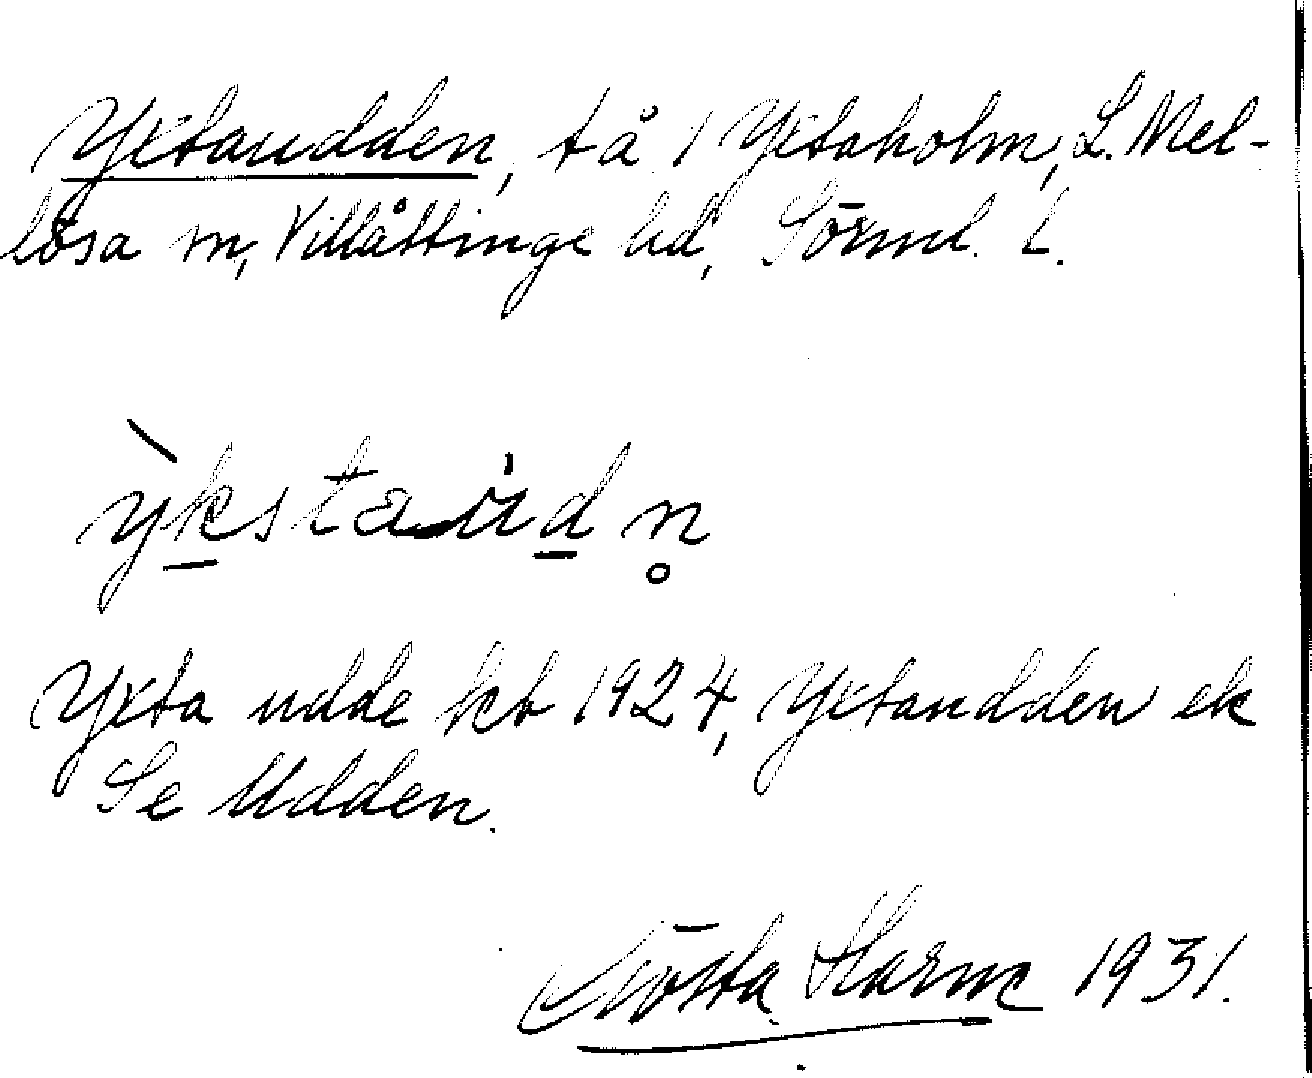 Yxtaudden, tå / Yxtaholm, L. Mel-
lösa sn, Villåttinge hd, Sörml. l.
ỳkstau̇dn̥
Yxta udde kb 1924, Yxtaudden ek
Se Udden.
Gösta Harme 1931.